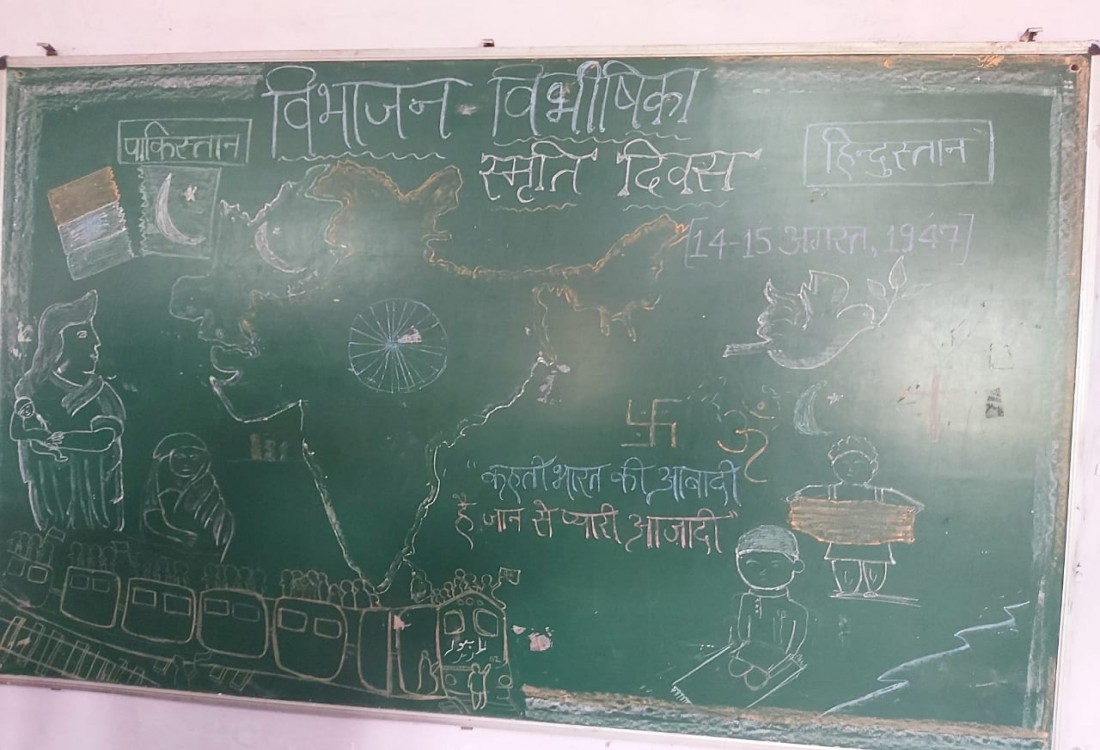 विभाजन विभीषिका
स्मृति दिवस
पाकिस्तान
हिन्दुस्तान
[14-15 अगस्त, 1947]
ॐ
"कहती भारत की आबादी
है जान से प्यारी आजादी"